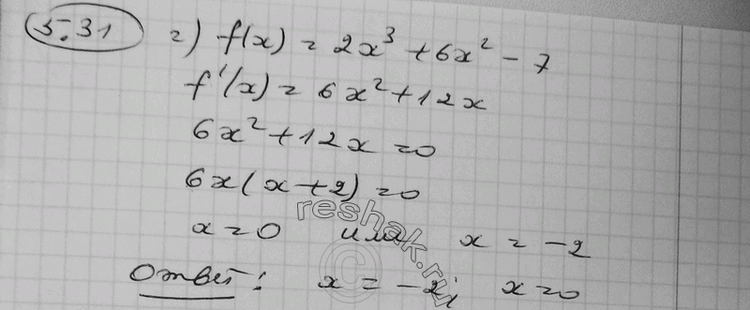 5.31 г) f(x) = 2x³ + 6x² - 7
f'(x) = 6x² + 12x
6x² + 12x = 0
6x(x + 2) = 0
x = 0 или x = -2
Ответ: x = -2; x = 0
reshak.ru
©